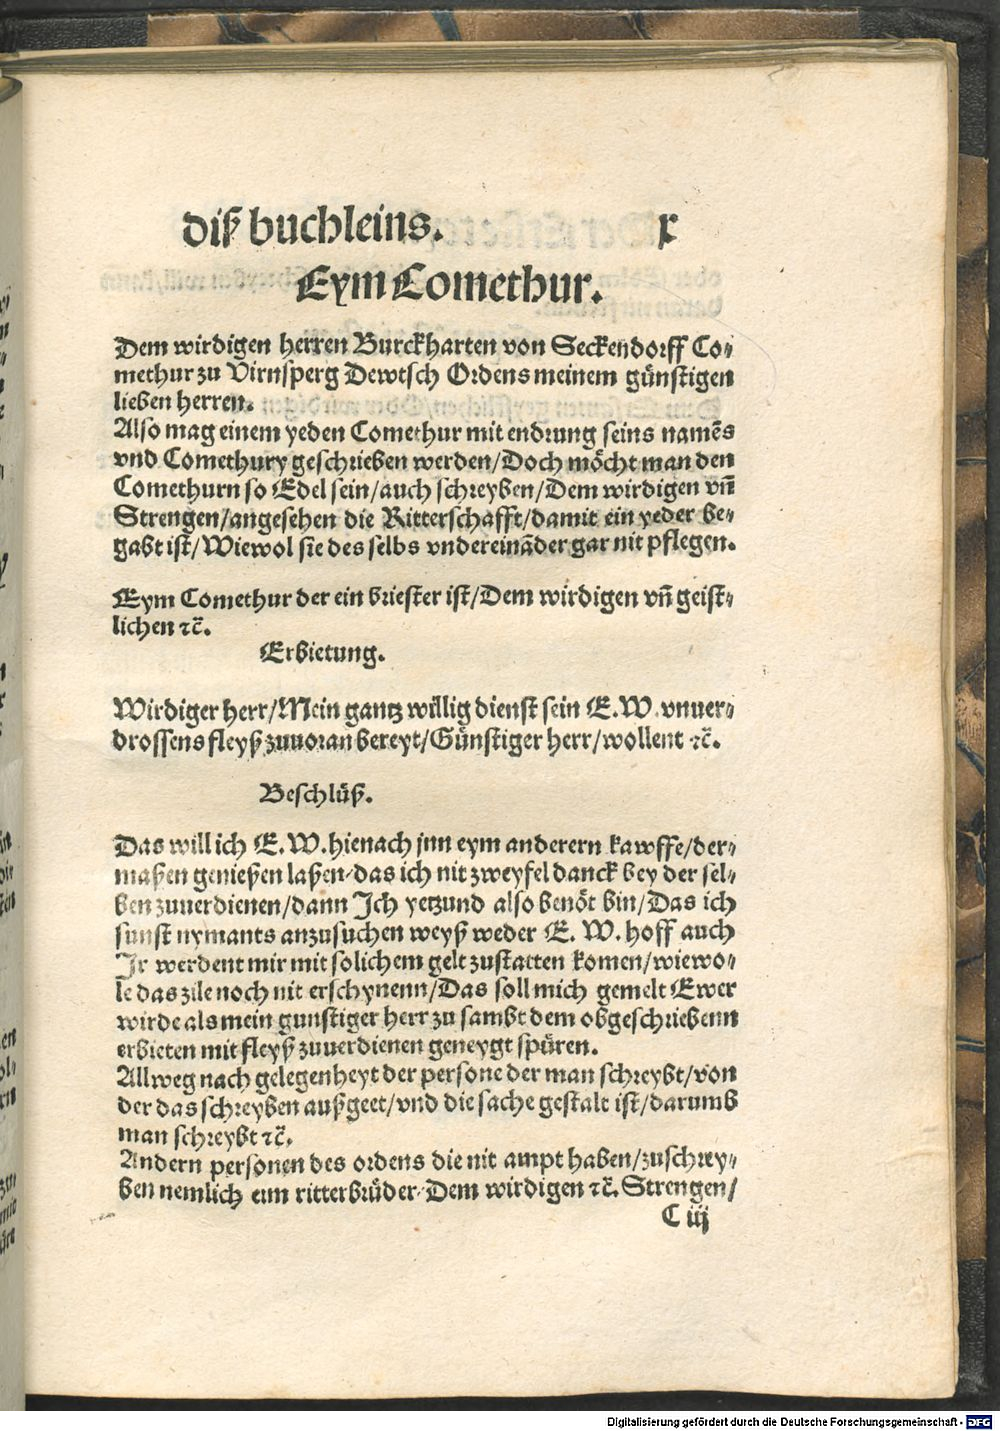 diß buchleins. x
Eym Comethur.
Dem wirdigen herren Burckharten von Seckendorff Co⸗
methur zu Virnsperg Dewtsch Ordens meinem günstigen
lieben herren.
Also mag einem yeden Comethur mit endrung seins namēs
vnd Comethury geschrieben werden/Doch möcht man den
Comethurn so Edel sein/auch schreyben/Dem wirdigen vñ
Strengen/angesehen die Ritterschafft/damit ein yeder be⸗
gabt ist/Wiewol sie des selbs vndereināder gar nit pflegen.
Eym Comethur der ein briester ist/Dem wirdigen vñ geist⸗
lichen ꝛc̄.
Erbietung.
Wirdiger herr/Mein gantz willig dienst sein E. W. vnuer⸗
drossens fleyß zuuoran bereyt/Günstiger herr/wollent ꝛc̄.
Beschlüß.
Das will ich E. W. hienach jnn eym anderern kawffe/der⸗
maßen genießen laßen/das ich nit zweyfel danck bey der sel⸗
ben zuuerdienen/dann Ich yetzund also benöt bin/Das ich
sunst nymants anzusuchen weyß weder E. W. hoff auch
Ir werdent mir mit solichem gelt zustatten komen/wiewo⸗
le das zile noch nit erschynenn/Das soll mich gemelt Ewer
wirde als mein gunstiger herr zu sambt dem obgeschriebenn
erbieten mit fleyß zuuerdienen geneygt spüren.
Allweg nach gelegenheyt der persone der man schreybt/von
der das schreyben außgeet/vnd die sache gestalt ist/darumb
man schreybt ꝛc̄.
Andern personen des ordens die nit ampt haben/zuschrey⸗
ben nemlich eim ritterbrüder/Dem wirdigen ꝛc̄. Strengen/
C iij
Digitalisierung gefördert durch die Deutsche Forschungsgemeinschaft - DFG